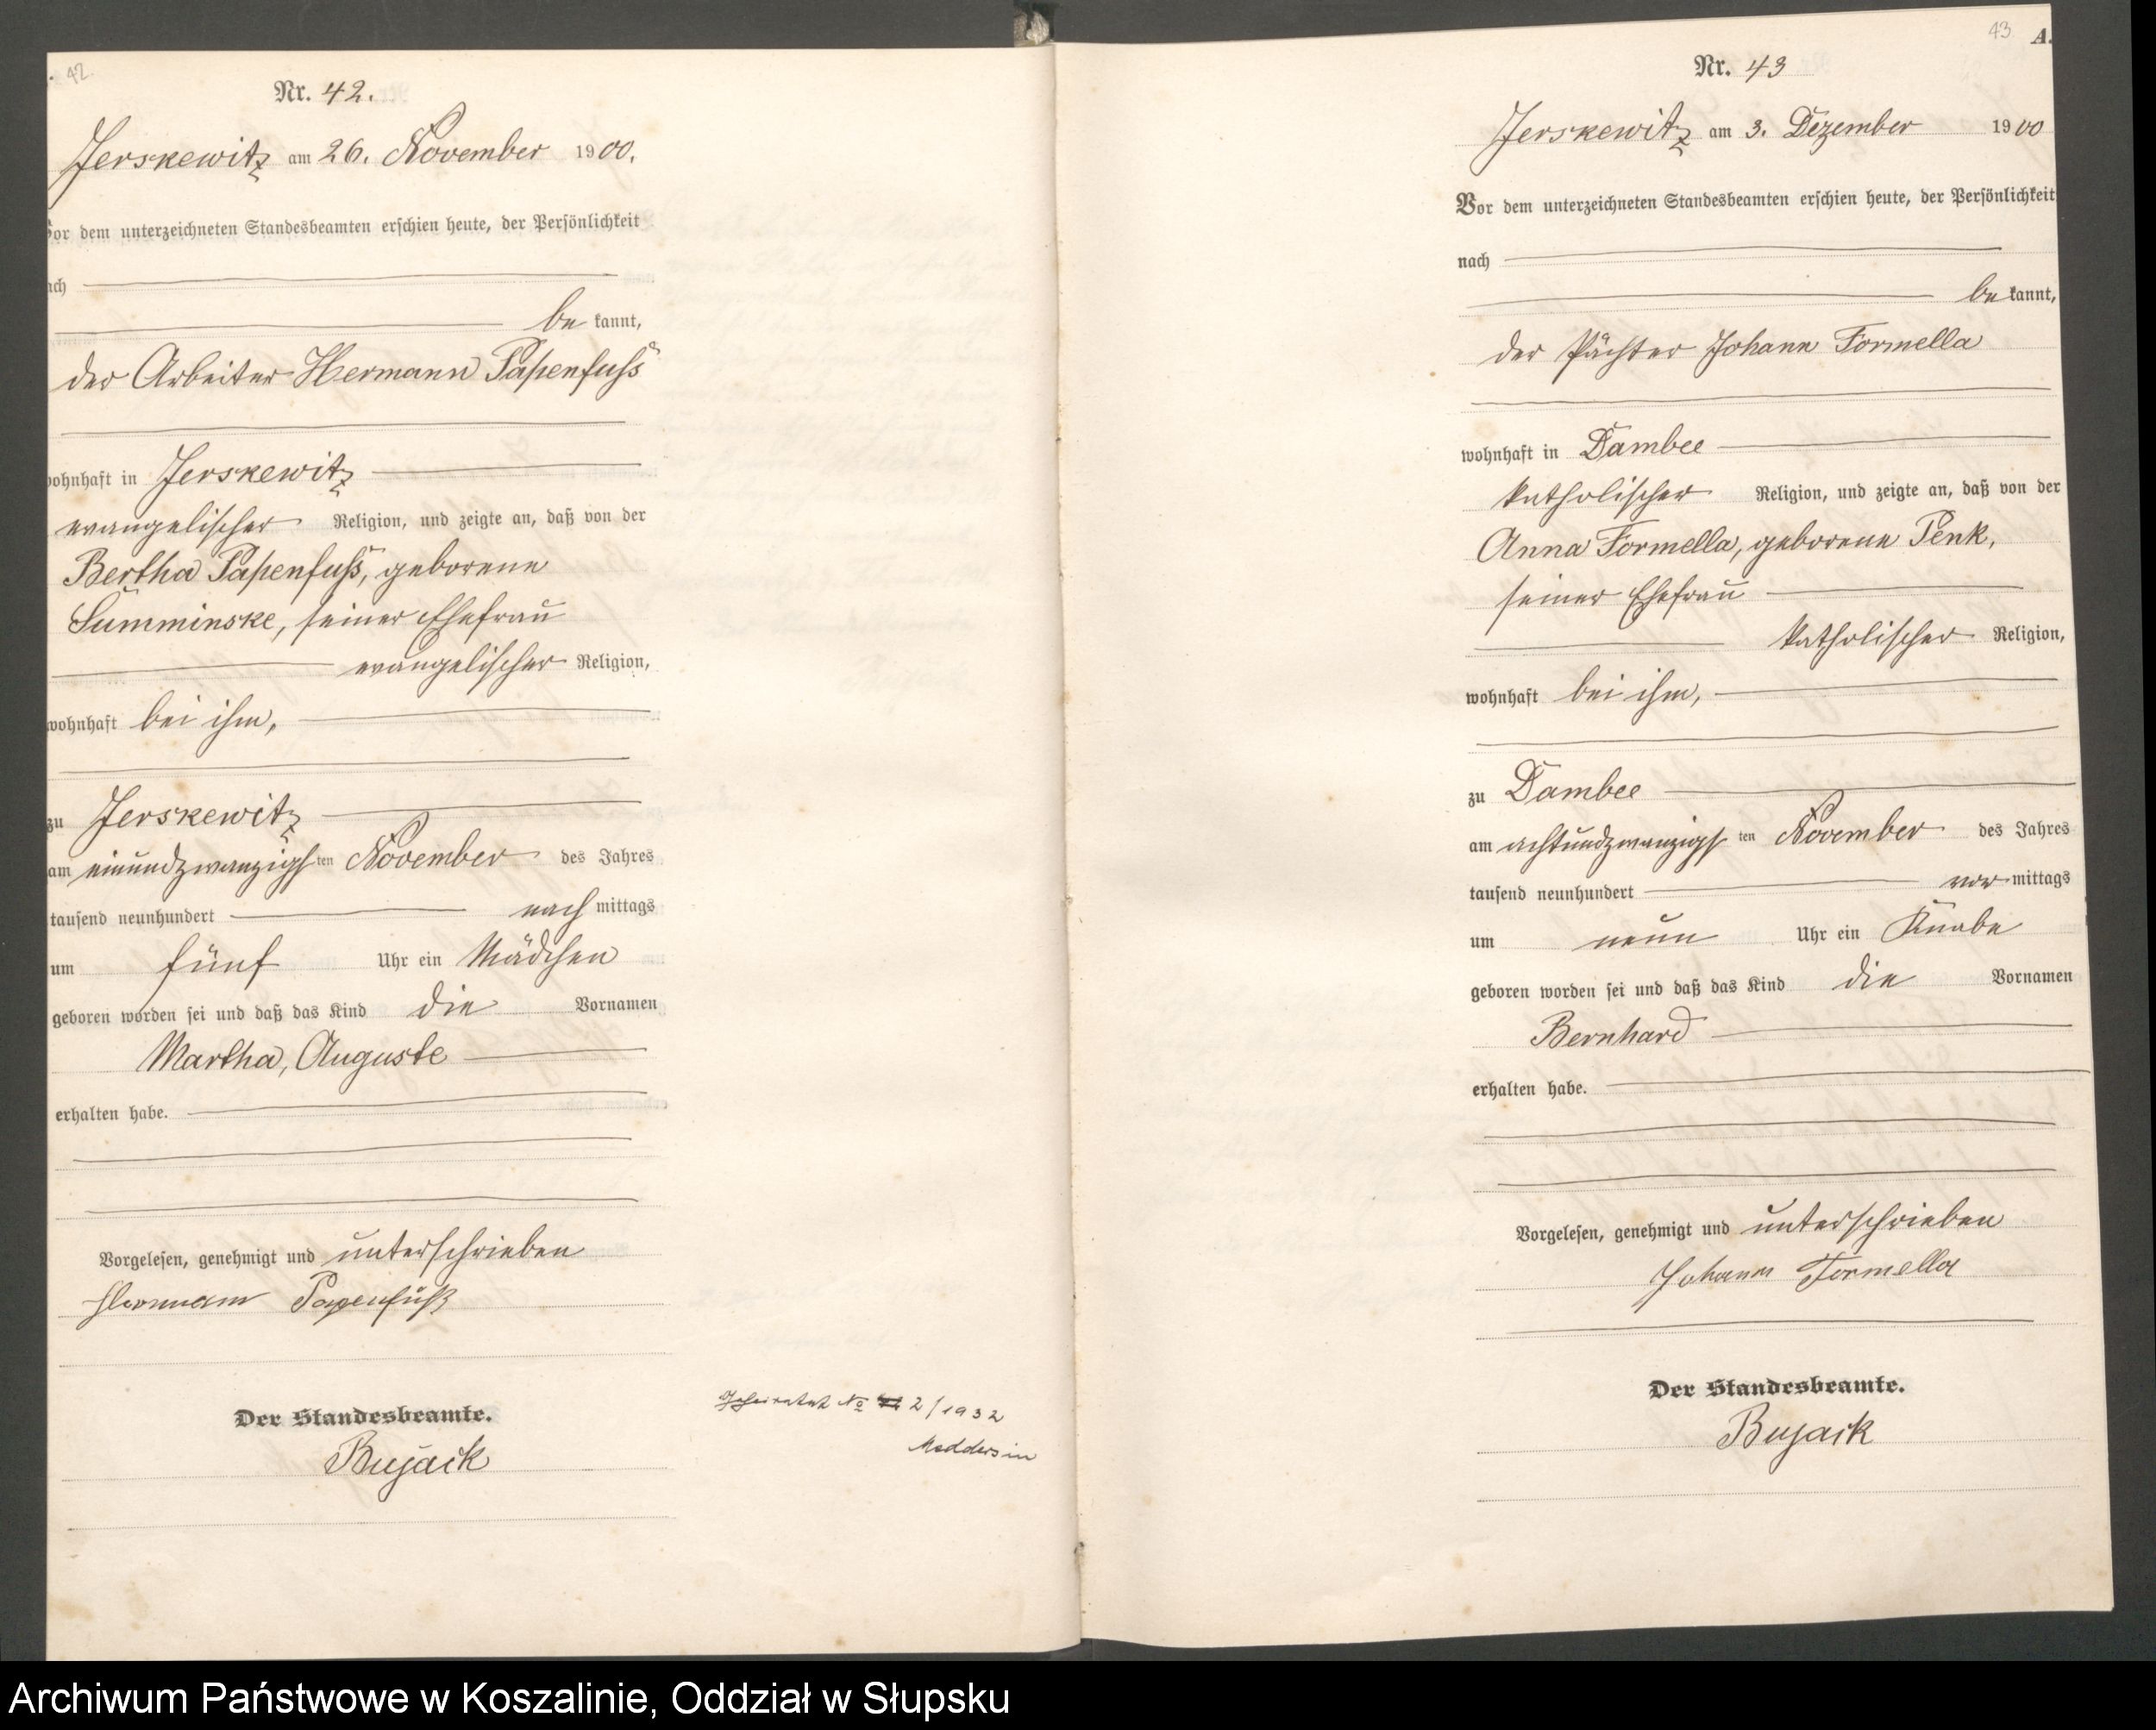 42.
Nr. 42.
Jerskewitz am 26. November 1900.
Vor dem unterzeichneten Standesbeamten erschien heute, der Persönlichkeit
nach
be kannt,
der Arbeiter Hermann Papenfuß
wohnhaft in Jerskewitz
evangelischer Religion, und zeigte an, daß von der
Bertha Papenfuß, geborene
Summinske, seiner Ehefrau
evangelischer Religion,
wohnhaft bei ihm,
zu Jerskewitz
am einundzwanzigsten November des Jahres
tausend neunhundert nach mittags
um fünf Uhr ein Mädchen
geboren worden sei und daß das Kind die Vornamen
Martha, Auguste
erhalten habe.
Vorgelesen, genehmigt und unterschrieben
Hermann Papenfuß
Der Standesbeamte.
Bujack
Geheiratet No 2/1932
Meddersin
43 A.
Nr. 43
Jerskewitz am 3. Dezember 1900
Vor dem unterzeichneten Standesbeamten erschien heute, der Persönlichkeit
nach
be kannt,
der Pächter Johann Formella
wohnhaft in Dambee
katholischer Religion, und zeigte an, daß von der
Anna Formella, geborene Penk,
seiner Ehefrau
katholischer Religion,
wohnhaft bei ihm,
zu Dambee
am achtundzwanzigsten November des Jahres
tausend neunhundert vor mittags
um neun Uhr ein Knabe
geboren worden sei und daß das Kind die Vornamen
Bernhard
erhalten habe.
Vorgelesen, genehmigt und unterschrieben
Johann Formella
Der Standesbeamte.
Bujack
Archiwum Państwowe w Koszalinie, Oddział w Słupsku